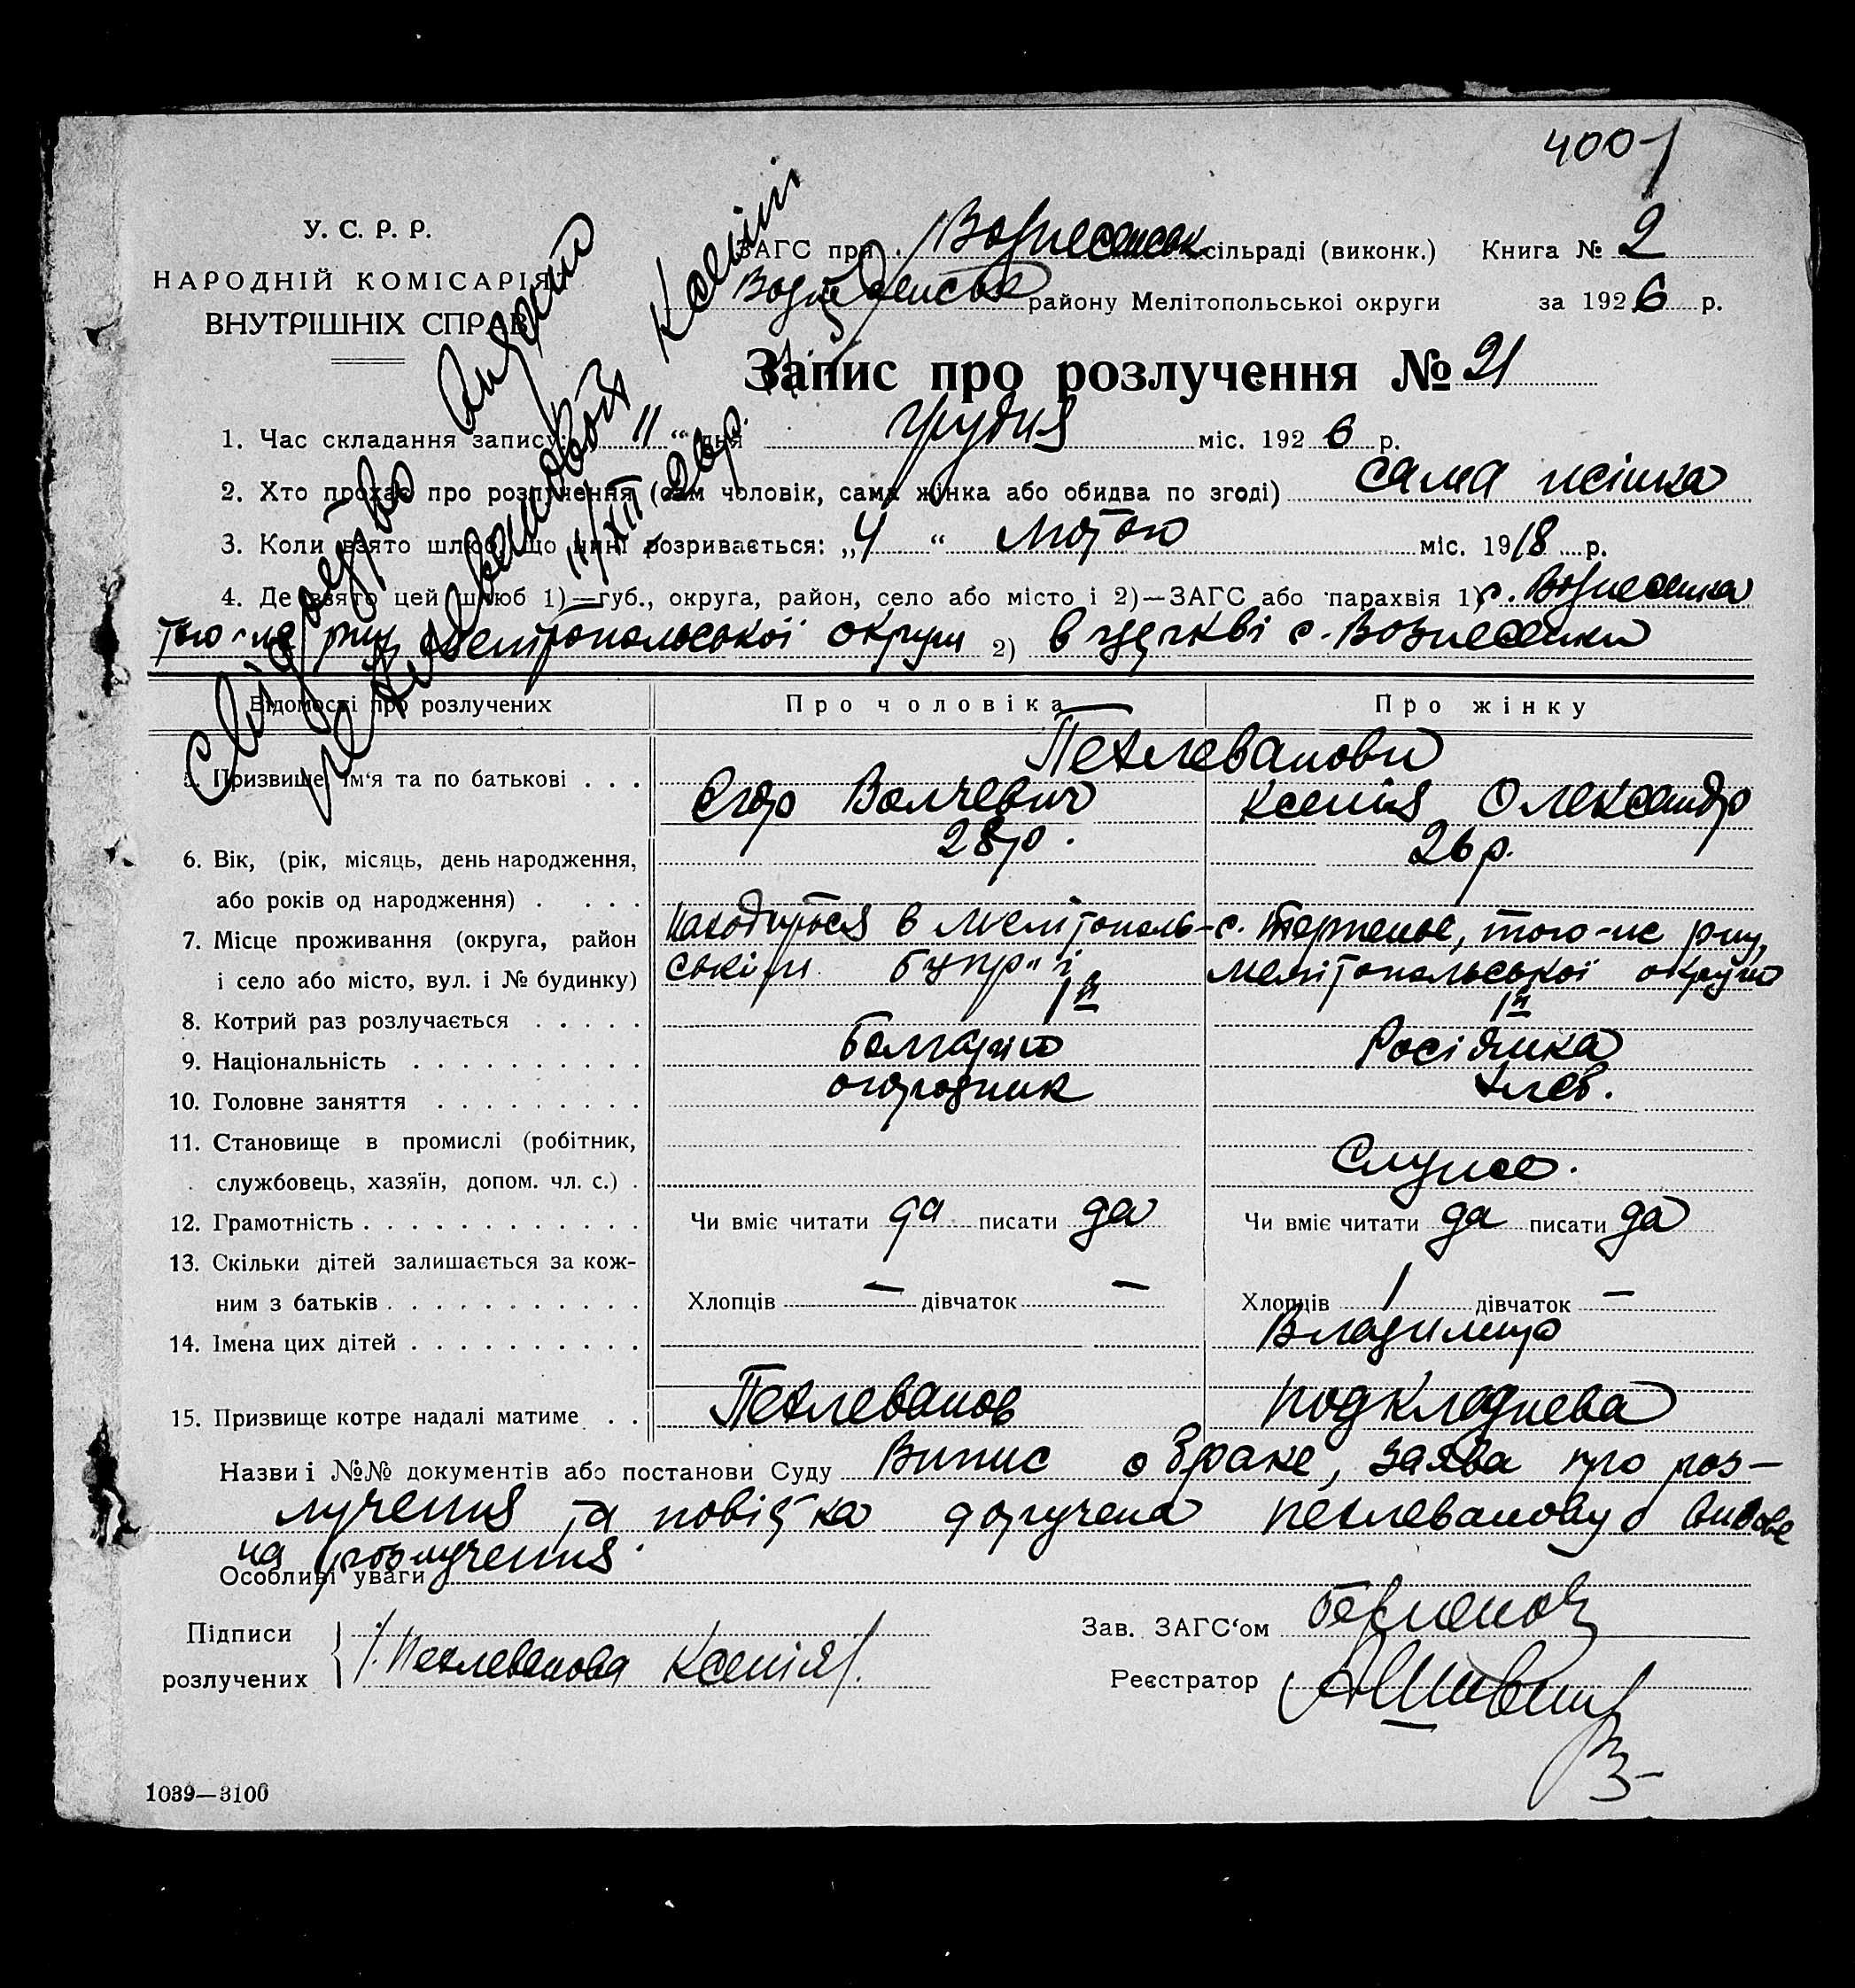 400
У. С. Р. Р.
НАРОДНІЙ КОМІСАРІЯТ
ВНУТРІШНІХ СПРАВ
ЗАГС при Вознесенськ сільраді (виконк.) Книга № 2
району Мелітопольської округи за 1926 р.
Запис про розлучення № 21
1. Час складання запису: „11“ дня грудня міс. 1926 р.
2. Хто прохає про розлучення (сам чоловік, сама жінка або обидва по згоді) сама жінка
3. Коли взято шлюб, що нині розривається: „4“ лютого міс. 1918 р.
4. Де взято цей шлюб 1)—губ., округа, район, село або місто і 2)—ЗАГС або парахвія 1) с. Вознесенка
того-же р-ну, Мелітопольської округи 2) в церкві с. Вознесенки
Свідоцтво видано
Пехливановой Ксенії
11/XII 26р.
Відомості про розлучених Про чоловіка Про жінку
Пехлеванови
5. Призвище, ім'я та по батькові . . . Єгор Волчевич Ксенія Олександр
6. Вік, (рік, місяць, день народження, 28р. 26 р.
або років од народження) . . . .
7. Місце проживання (округа, район находиться в Мелітополь- с. Терпенье, того-же р-ну,
і село або місто, вул. і № будинку) ськім Бупр"і Мелітопольської округи
8. Котрий раз розлучається . . . . . 1й 1й
9. Національність . . . . . . . . . . Болгарин Росіянка
10. Головне заняття . . . . . . . . . огородник хлеб.
11. Становище в промислі (робітник,
службовець, хазяїн, допом. чл. с.) . Служ.
12. Грамотність . . . . . . . . . . . . Чи вміє читати да писати да Чи вміє читати да писати да
13. Скільки дітей залишається за кож-
ним з батьків . . . . . . . . . . . Хлопців — дівчаток — Хлопців 1 дівчаток —
14. Імена цих дітей . . . . . . . . . . Владимир
15. Призвище котре надалі матиме . . Пехлеванов Подкладнева
Назви і №№ документів або постанови Суду Випис о браке, заява про роз-
лучення та повістка доручена Пехлеванову о визове
на розлучення.
Особливі уваги
Підписи
розлучених /Пехлеванова Ксенія/.
Зав. ЗАГС'ом
Реєстратор
1039—3100